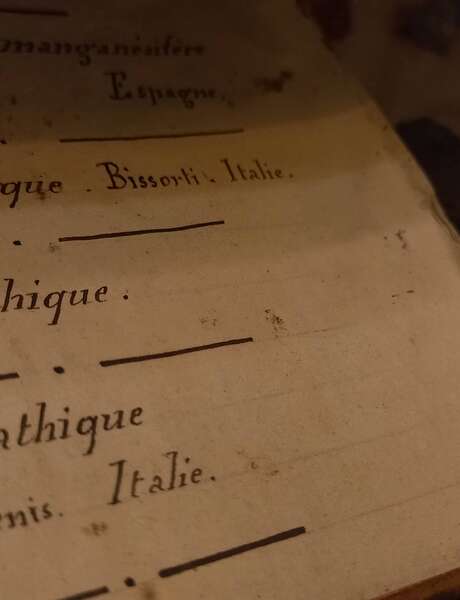 manganésifère
Espagne.
que. Bissorti. Italie.
hique.
athique
enis. Italie.